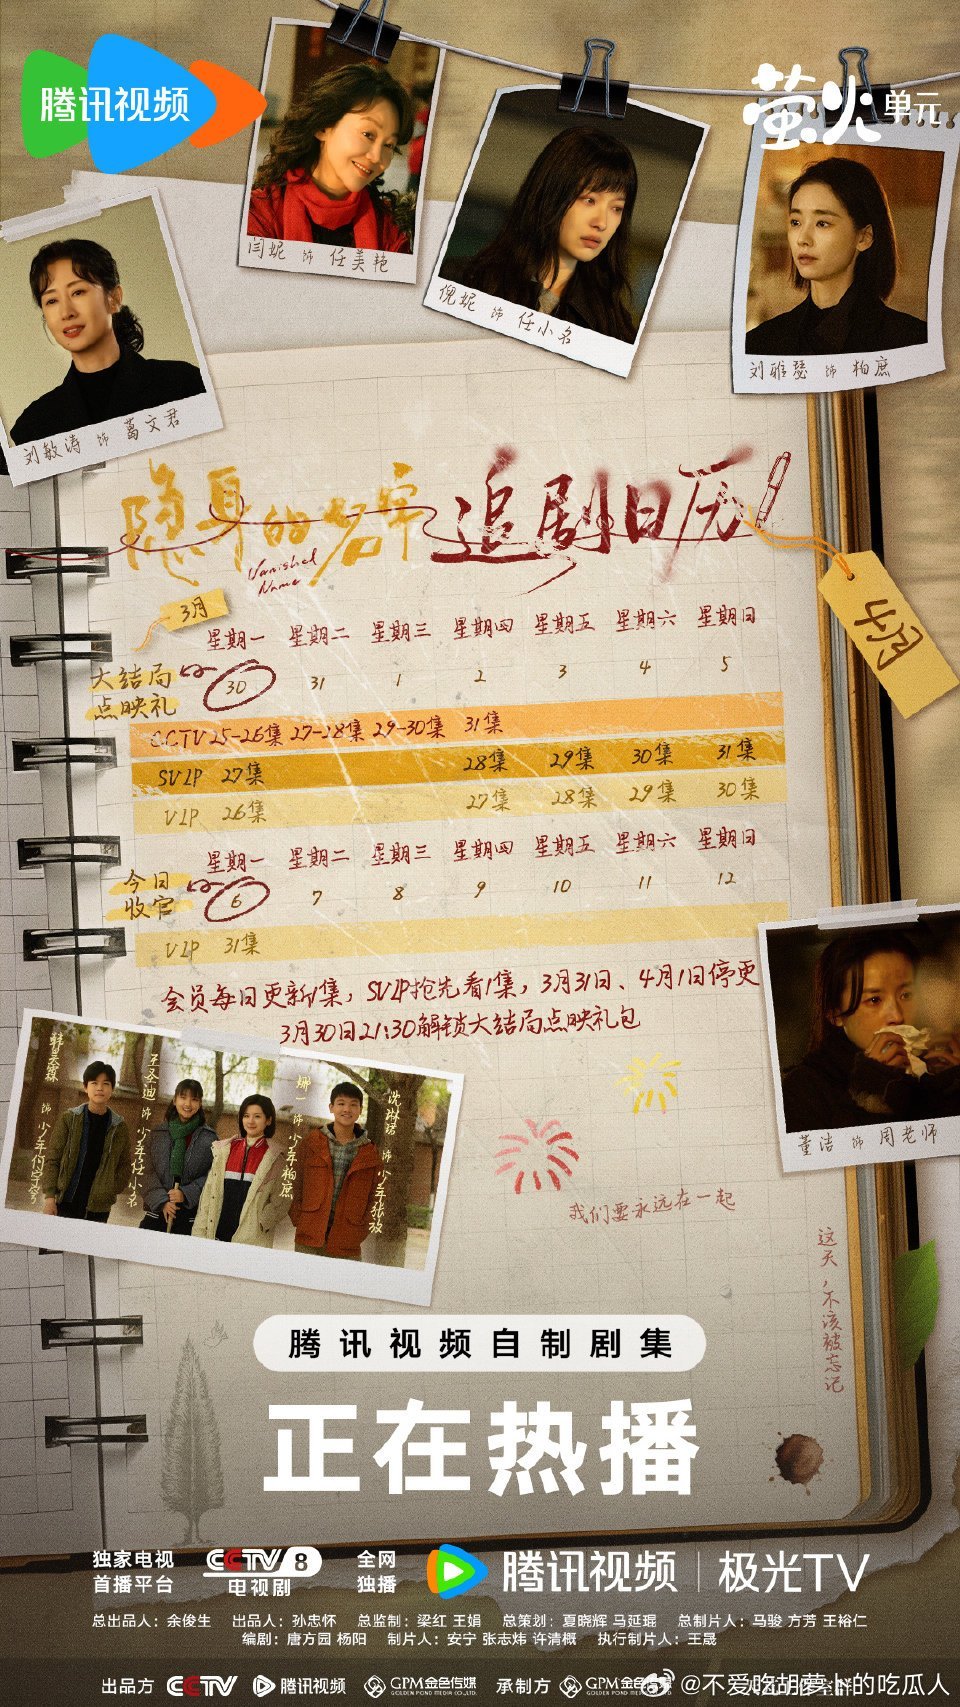 腾讯视频
萤火单元
闫妮 饰 任美艳
倪妮 饰 任小名
刘雅瑟 饰 柏庶
刘敏涛 饰 葛文君
隐身的名字 追剧日历
Vanished Name
3月
4月
星期一 星期二 星期三 星期四 星期五 星期六 星期日
大结局点映礼
30 31 1 2 3 4 5
CCTV 25-26集 27-28集 29-30集 31集
SVIP 27集 28集 29集 30集 31集
VIP 26集 27集 28集 29集 30集
星期一 星期二 星期三 星期四 星期五 星期六 星期日
今日收官
6 7 8 9 10 11 12
VIP 31集
会员每日更新1集，SVIP抢先看1集，3月31日、4月1日停更
3月30日21:30解锁大结局点映礼包
韩昊霖 饰 少年何宇穹
王圣迪 饰 少年任小名
娜一 饰 少年柏庶
沈琳诺 饰 少年张放
董洁 饰 周老师
我们要永远在一起
这天，不该被忘记
腾讯视频自制剧集
正在热播
独家电视首播平台 CCTV 8 电视剧 全网独播 腾讯视频 | 极光TV
总出品人：余俊生 出品人：孙忠怀 总监制：梁红 王娟 总策划：夏晓辉 马延琨 总制片人：马骏 方芳 王裕仁
编剧：唐方园 杨阳 制片人：安宁 张志炜 许清概 执行制片人：王晟
出品方 CCTV 腾讯视频 GPM金色传媒 GOLDEN POND MEDIA CO.,LTD. 承制方 GPM
@不爱吃胡萝卜的吃瓜人